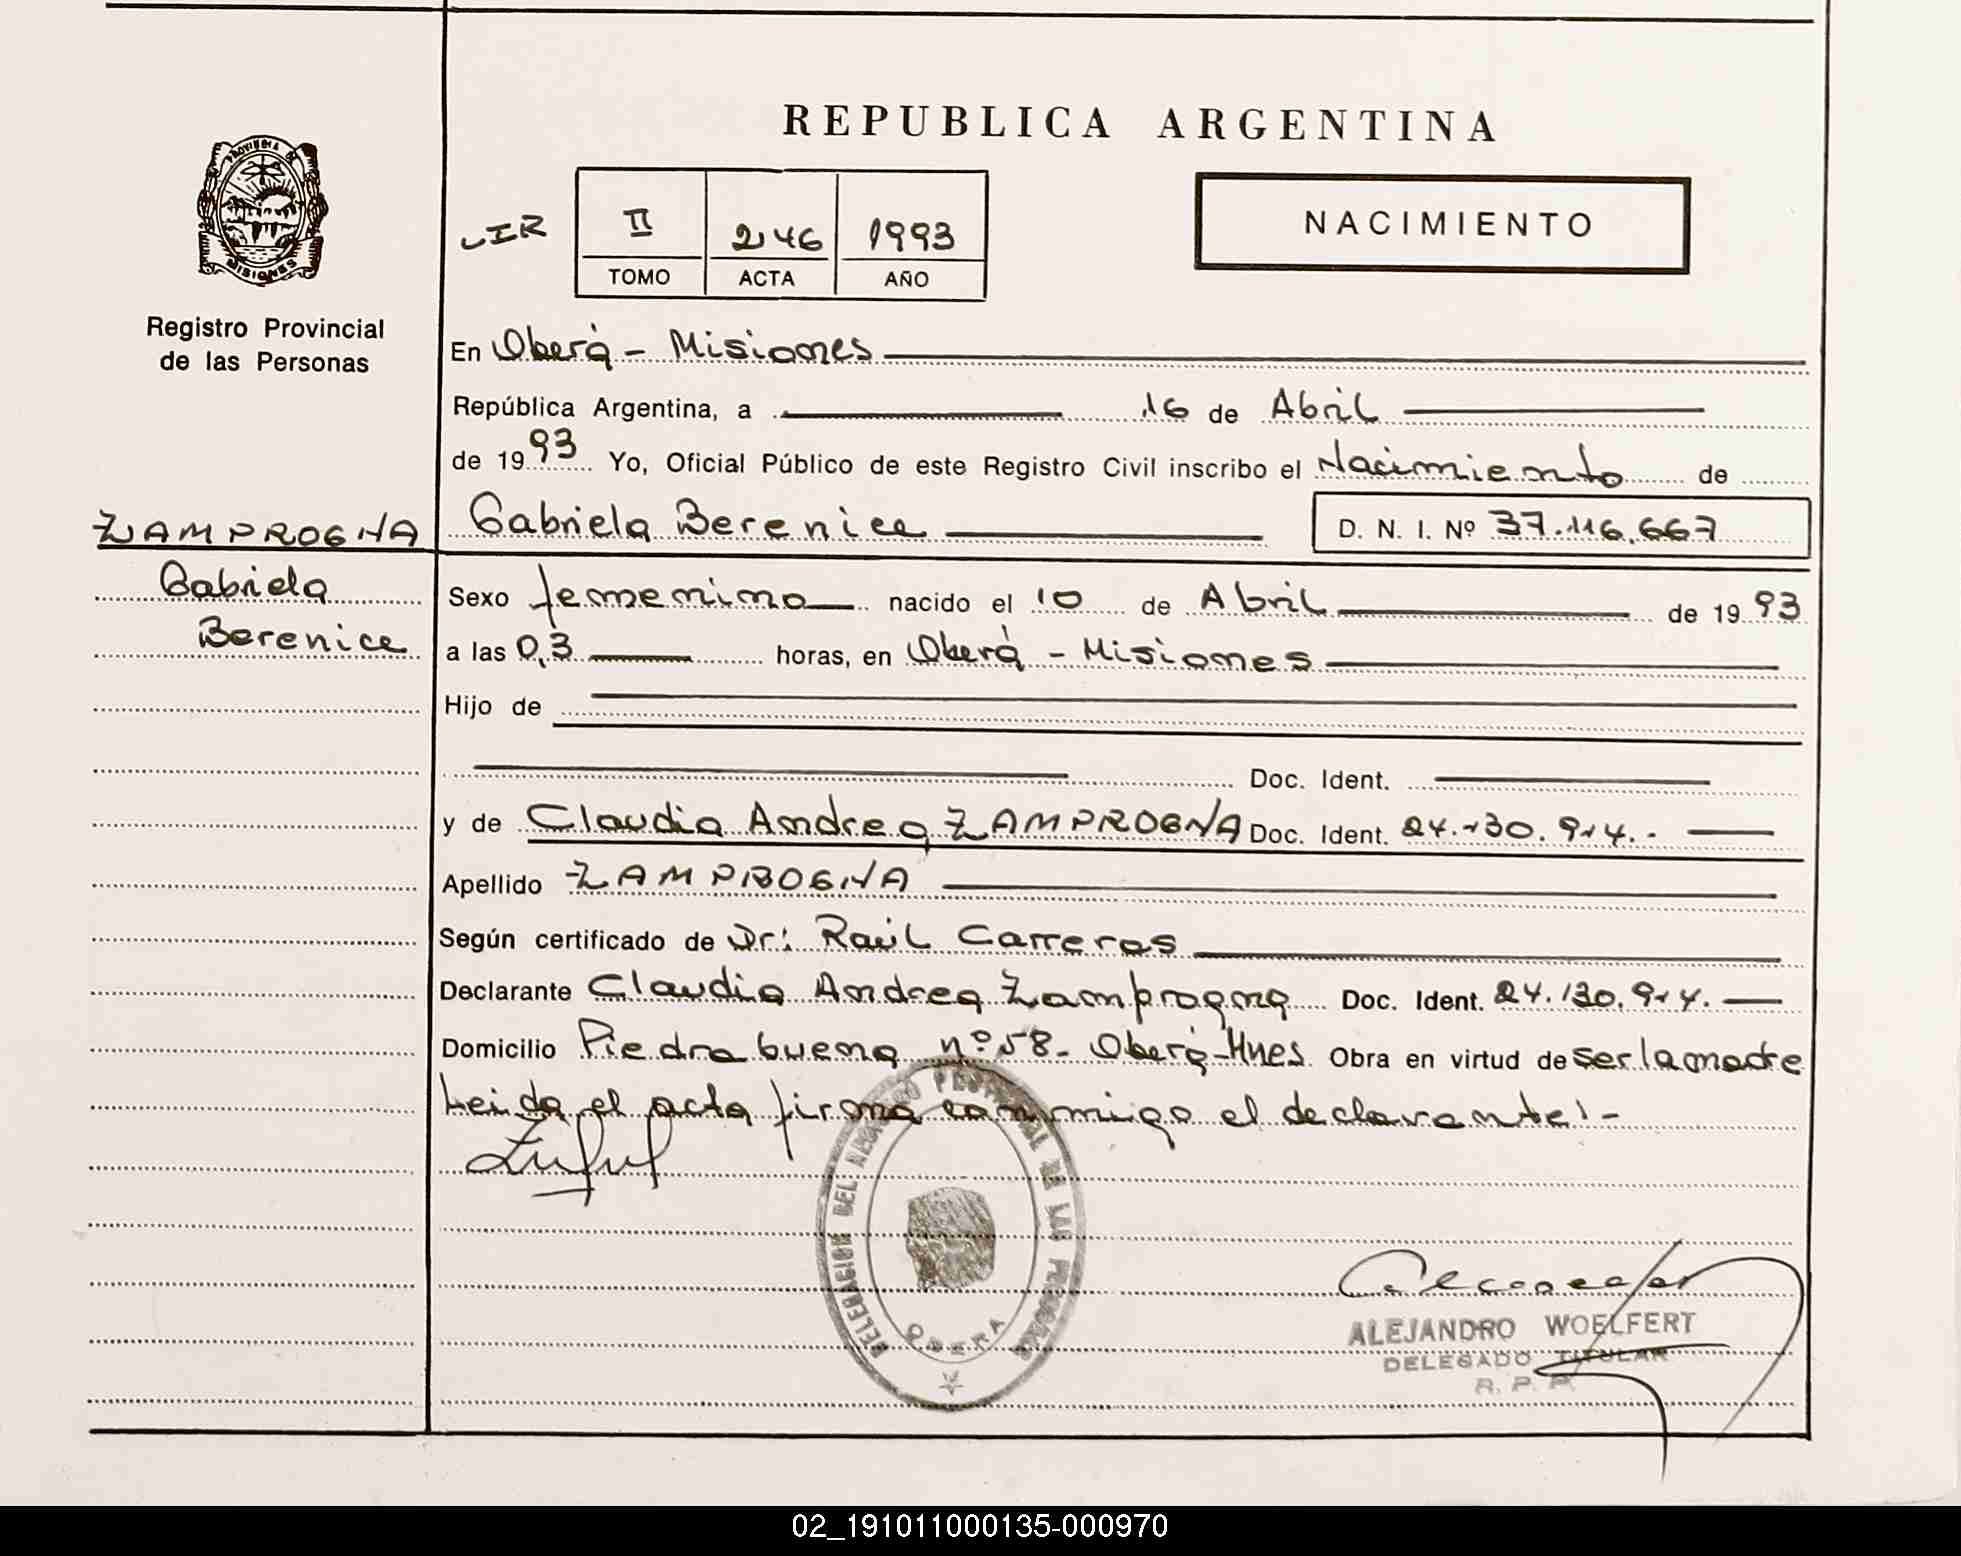 REPUBLICA ARGENTINA
PROVINCIA DE
MISIONES
Registro Provincial
de las Personas
CIR
II 246 1993
TOMO ACTA AÑO
NACIMIENTO
En Oberá - Misiones
República Argentina, a 16 de Abril
de 1993 Yo, Oficial Público de este Registro Civil inscribo el Nacimiento de
ZAMPROGNA Gabriela Berenice D. N. I. Nº 37.116.667
Gabriela
Berenice
Sexo femenino nacido el 10 de Abril de 1993
a las 0,3 horas, en Oberá - Misiones
Hijo de
Doc. Ident.
y de Claudia Andrea ZAMPROGNA Doc. Ident. 24.130.914.-
Apellido ZAMPROGNA
Según certificado de Dr: Raúl Carreras
Declarante Claudia Andrea Zamprogna Doc. Ident. 24.130.914.
Domicilio Piedrabuena nº 58- Oberá-Mnes Obra en virtud de ser la madre
Leida el acta firma conmigo el declarante!-
DELEGACION DEL REGISTRO PROVINCIAL DE LAS PERSONAS
OBERA
ALEJANDRO WOELFERT
DELEGADO TITULAR
R. P. P.
02_191011000135-000970